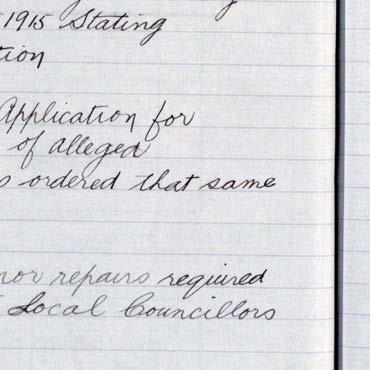 1915 Stating
tion
Application for
of alleged
s ordered that same
nor repairs required
Local Councillors